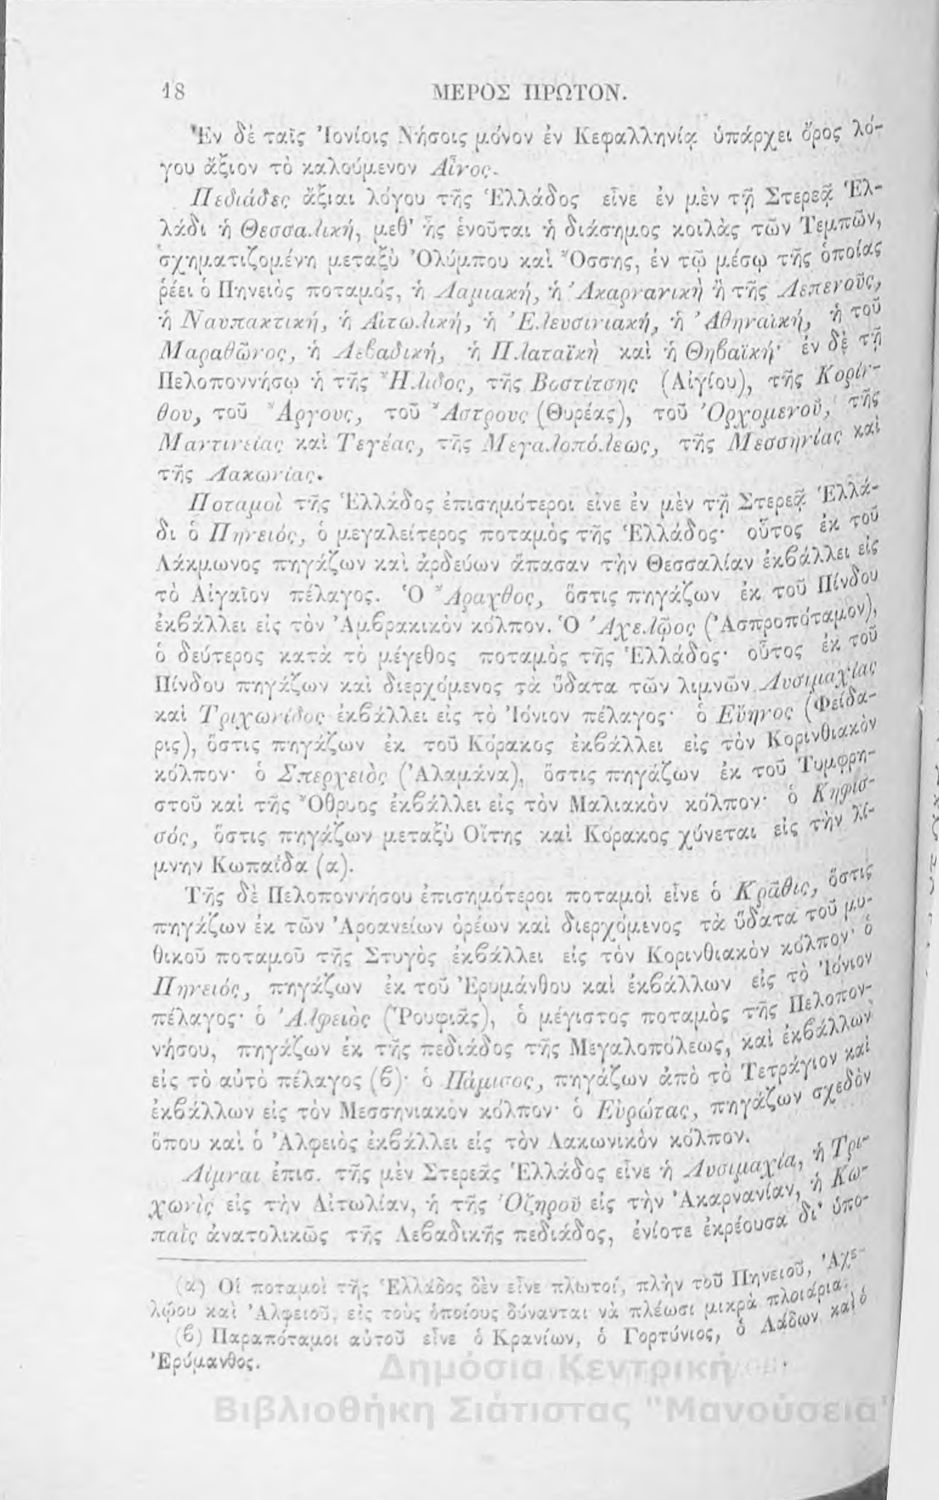 18 ΜΕΡΟΣ ΠΡΩΤΟΝ.
Ἐν δὲ ταῖς Ἰονίοις Νήσοις μόνον ἐν Κεφαλληνίᾳ ὑπάρχει ὄρος λό-
γου ἄξιον τὸ καλούμενον Αἶνος.
Πεδιάδες ἄξιαι λόγου τῆς Ἑλλάδος εἶνε ἐν μὲν τῇ Στερεᾷ Ἑλ-
λάδι ἡ Θεσσαλική, μεθ' ἧς ἑνοῦται ἡ διάσημος κοιλὰς τῶν Τεμπῶν,
σχηματιζομένη μεταξὺ Ὀλύμπου καὶ Ὄσσης, ἐν τῷ μέσῳ τῆς ὁποίας
ῥέει ὁ Πηνειὸς ποταμός, ἡ Λαμιακή, ἡ Ἀκαρνανικὴ ἢ τῆς Λεπενοῦς,
ἡ Ναυπακτική, ἡ Αἰτωλική, ἡ Ἐλευσινιακή, ἡ Ἀθηναϊκή, ἡ τοῦ
Μαραθῶνος, ἡ Λεβαδική, ἡ Πλαταϊκὴ καὶ ἡ Θηβαϊκή· ἐν δὲ τῇ
Πελοποννήσῳ ἡ τῆς Ἤλιδος, τῆς Βοστίτσης (Αἰγίου), τῆς Κορίν-
θου, τοῦ Ἄργους, τοῦ Ἄστρους (Θυρέας), τοῦ Ὀρχομενοῦ, τῆς
Μαντινείας καὶ Τεγέας, τῆς Μεγαλοπόλεως, τῆς Μεσσηνίας καὶ
τῆς Λακωνίας.
Ποταμοὶ τῆς Ἑλλάδος ἐπισημότεροι εἶνε ἐν μὲν τῇ Στερεᾷ Ἑλλά-
δι ὁ Πηνειός, ὁ μεγαλείτερος ποταμὸς τῆς Ἑλλάδος· οὗτος ἐκ τοῦ
Λάκμωνος πηγάζων καὶ ἀρδεύων ἅπασαν τὴν Θεσσαλίαν ἐκβάλλει εἰς
τὸ Αἰγαῖον πέλαγος. Ὁ Ἄραχθος, ὅστις πηγάζων ἐκ τοῦ Πίνδου
ἐκβάλλει εἰς τὸν Ἀμβρακικὸν κόλπον. Ὁ Ἀχελῷος (Ἀσπροπόταμον),
ὁ δεύτερος κατὰ τὸ μέγεθος ποταμὸς τῆς Ἑλλάδος· οὗτος ἐκ τοῦ
Πίνδου πηγάζων καὶ διερχόμενος τὰ ὕδατα τῶν λιμνῶν Λυσιμαχίας
καὶ Τριχωνίδος ἐκβάλλει εἰς τὸ Ἰόνιον πέλαγος· ὁ Εὔηνος (Φείδα-
ρις), ὅστις πηγάζων ἐκ τοῦ Κόρακος ἐκβάλλει εἰς τὸν Κορινθιακὸν
κόλπον· ὁ Σπερχειὸς (Ἀλαμάνα), ὅστις πηγάζων ἐκ τοῦ Τυμφρη-
στοῦ καὶ τῆς Ὄθρυος ἐκβάλλει εἰς τὸν Μαλιακὸν κόλπον· ὁ Κηφισ-
σός, ὅστις πηγάζων μεταξὺ Οἴτης καὶ Κόρακος χύνεται εἰς τὴν λί-
μνην Κωπαΐδα (α).
Τῆς δὲ Πελοποννήσου ἐπισημότεροι ποταμοὶ εἶνε ὁ Κρᾶθις, ὅστις
πηγάζων ἐκ τῶν Ἀροανείων ὀρέων καὶ διερχόμενος τὰ ὕδατα τοῦ μυ-
θικοῦ ποταμοῦ τῆς Στυγὸς ἐκβάλλει εἰς τὸν Κορινθιακὸν κόλπον· ὁ
Πηνειός, πηγάζων ἐκ τοῦ Ἐρυμάνθου καὶ ἐκβάλλων εἰς τὸ Ἰόνιον
πέλαγος· ὁ Ἀλφειὸς (Ῥουφιᾶς), ὁ μέγιστος ποταμὸς τῆς Πελοπον-
νήσου, πηγάζων ἐκ τῆς πεδιάδος τῆς Μεγαλοπόλεως, καὶ ἐκβάλλων
εἰς τὸ αὐτὸ πέλαγος (β)· ὁ Πάμισος, πηγάζων ἀπὸ τὸ Τετράγιον καὶ
ἐκβάλλων εἰς τὸν Μεσσηνιακὸν κόλπον· ὁ Εὐρώτας, πηγάζων σχεδὸν
ὅπου καὶ ὁ Ἀλφειὸς ἐκβάλλει εἰς τὸν Λακωνικὸν κόλπον.
Λίμναι ἐπισ. τῆς μὲν Στερεᾶς Ἑλλάδος εἶνε ἡ Λυσιμαχία, ἡ Τρι-
χωνὶς εἰς τὴν Αἰτωλίαν, ἡ τῆς Ὀζηροῦ εἰς τὴν Ἀκαρνανίαν, ἡ Κω-
παῒς ἀνατολικῶς τῆς Λεβαδικῆς πεδιάδος, ἐνίοτε ἐκρέουσα δι' ὑπο-
(α) Οἱ ποταμοὶ τῆς Ἑλλάδος δὲν εἶνε πλωτοί, πλὴν τοῦ Πηνειοῦ, Ἀχε-
λῴου καὶ Ἀλφειοῦ, εἰς τοὺς ὁποίους δύνανται νὰ πλέωσι μικρὰ πλοιάρια.
(β) Παραπόταμοι αὐτοῦ εἶνε ὁ Κρανίων, ὁ Γορτύνιος, ὁ Λάδων καὶ ὁ
Ἐρύμανθος.
Δημόσια Κεντρική
Βιβλιοθήκη Σιάτιστας "Μανούσεια"